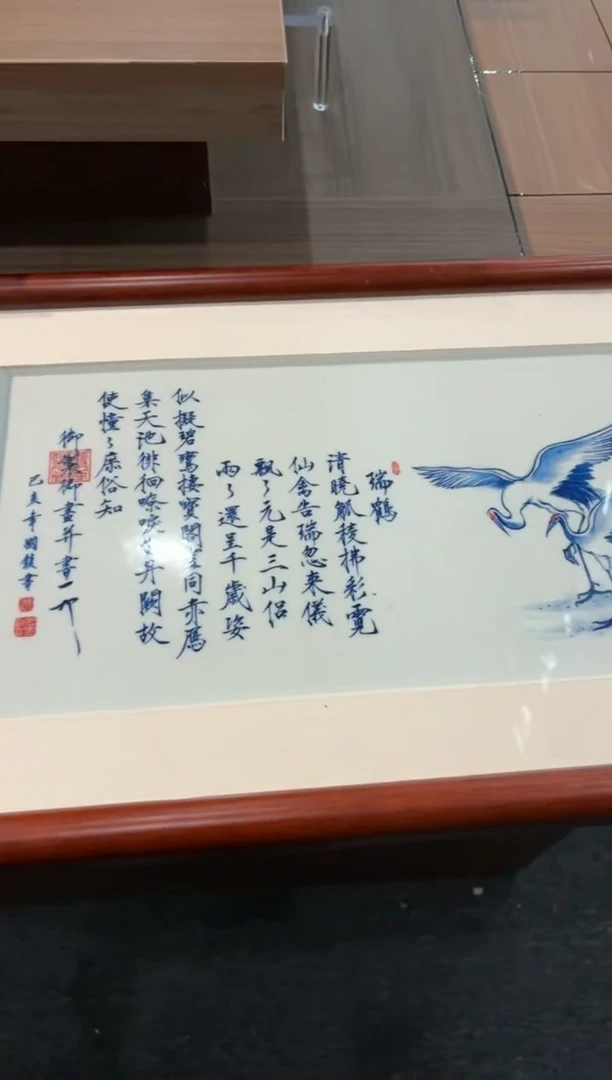 瑞鶴
清曉觚稜拂彩霓
仙禽告瑞忽來儀
飄々元是三山侶
兩々還呈千歲姿
似擬碧鸞棲寶閣豈同赤鴈
集天池徘徊嘹唳當丹闕故
使憧々庶俗知
御製御畫并書
己亥年國書